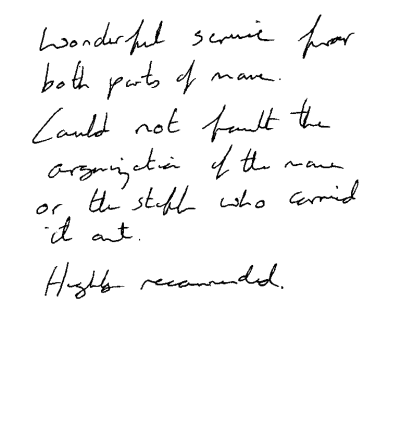 Wonderful service from
both parts of move.
Could not fault the
organization of the move
or the staff who carried
it out.
Highly recommended.